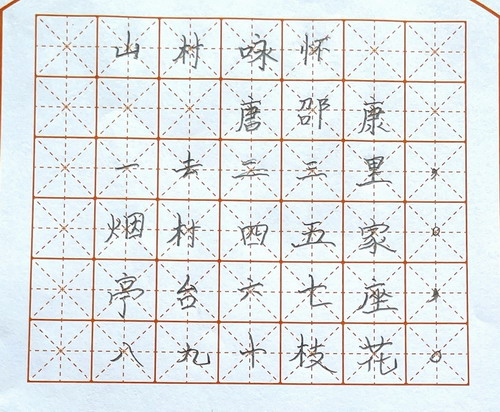 山村咏怀
唐邵康
一去二三里，
烟村四五家。
亭台六七座，
八九十枝花。